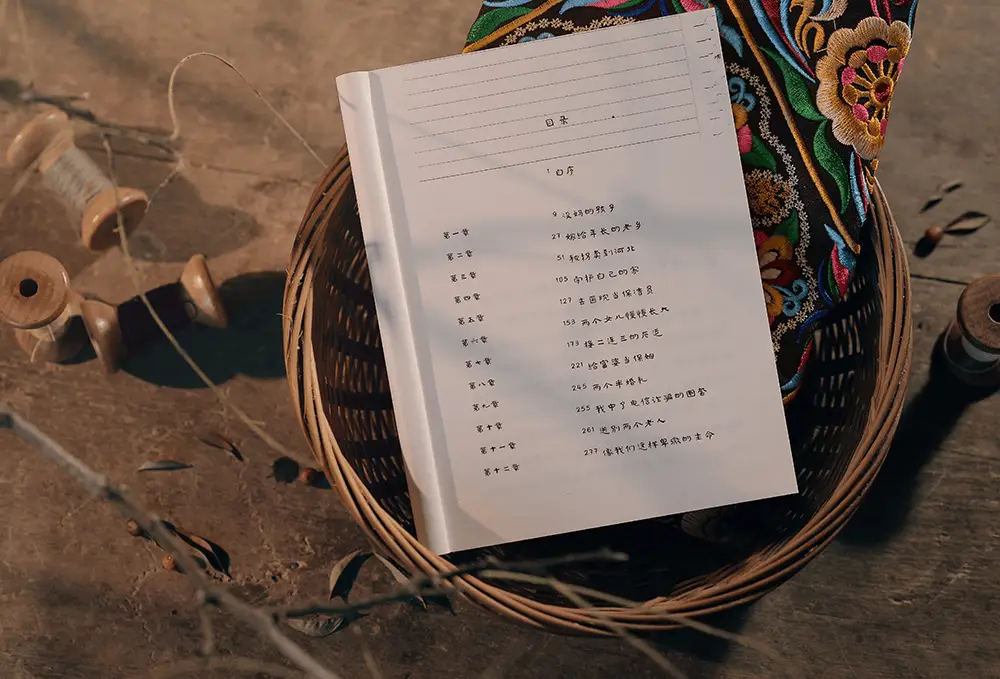 目录
1 自序
第一章 9 没妈的孩子
第二章 27 嫁给年长的老乡
第三章 51 被拐卖到河北
第四章 105 守护自己的家
第五章 127 去医院当保洁员
第六章 153 两个女儿慢慢长大
第七章 173 接二连三的厄运
第八章 221 给富婆当保姆
第九章 245 两个半婚礼
第十章 255 我中了电信诈骗的圈套
第十一章 261 送别两个老人
第十二章 277 像我们这样卑微的生命